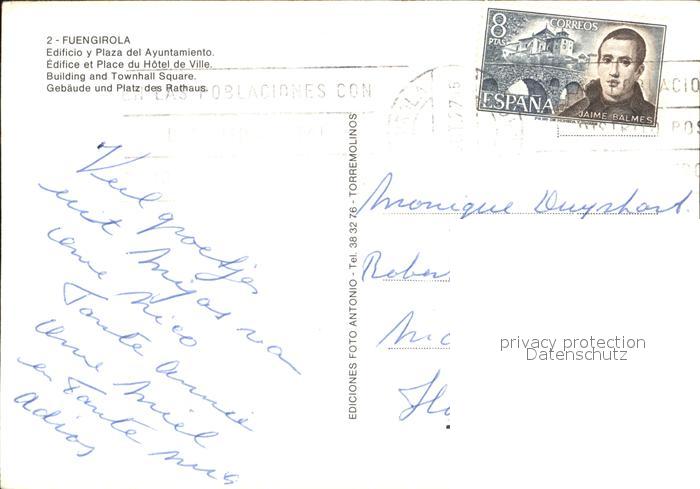 2 - FUENGIROLA
Edificio y Plaza del Ayuntamiento.
Édifice et Place du Hôtel de Ville.
Building and Townhall Square.
Gebäude und Platz des Rathaus.
EN LAS POBLACIONES CON
8
PTAS
CORREOS
ESPAÑA
JAIME BALMES
EDICIONES FOTO ANTONIO - Tel. 38 32 76 - TORREMOLINOS
Veel groetjes
uit Mijas van
ome Nico
Tante Annie
ome Miel
en Tante Mia
adios
Monique
privacy protection
Datenschutz